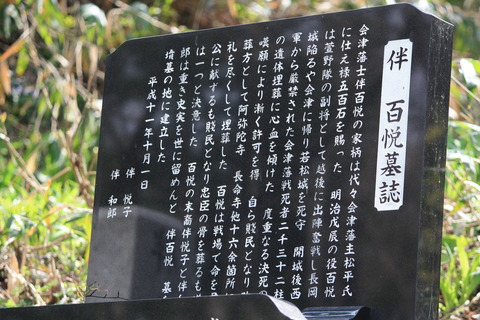 伴 百悦墓誌
会津藩士伴百悦の家柄は代々会津藩主松平氏
に仕え禄五百石を賜った 明治戊辰の役百悦
は萱野隊の副将として越後に出陣奮戦し長岡
城陥るや会津に帰り若松城を死守 開城後西
軍から厳禁された会津藩戦死者二千三十二柱
の遺体埋葬に心血を傾けた 度重なる決死の
嘆願により漸く許可を得 自ら賤民となり
葬方として阿弥陀寺 長命寺他十六余箇所に
礼を尽くして埋葬した 百悦は戦場で命を
公に献ずるも賤民となり忠臣の骨を葬るも
は一つと決意した 百悦の末裔伴悦子と伴
郎は重き史実を世に留めんと 伴百悦 墓
墳墓の地に建立した
平成十一年十月一日
伴 悦子
伴 和郎